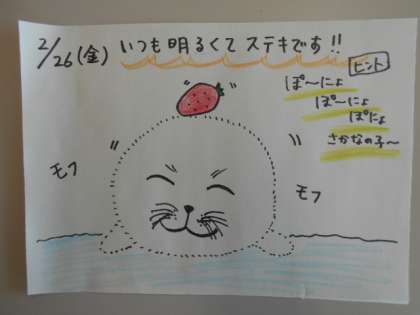 2/26(金) いつも明るくてステキです!!
ヒント
ぽ〜にょ
ぽ〜にょ
ぽにょ
さかなの子〜
モフ
モフ